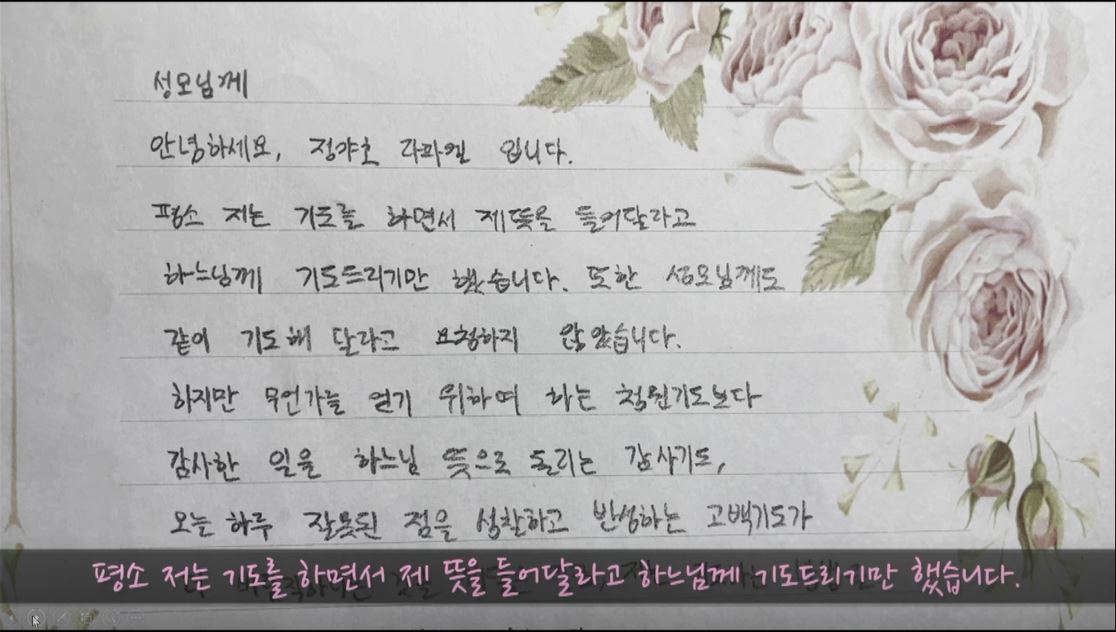 성모님께
안녕하세요, 정야초 라파엘 입니다.
평소 저는 기도를 하면서 제뜻을 들어달라고
하느님께 기도드리기만 했습니다. 또한 성모님께도
같이 기도해 달라고 요청하지 않았습니다.
하지만 무언가를 얻기 위하여 하는 청원기도보다
감사한 일을 하느님 뜻으로 돌리는 감사기도,
오늘 하루 잘못된 점을 성찰하고 반성하는 고백기도가
평소 저는 기도를 하면서 제 뜻을 들어달라고 하느님께 기도드리기만 했습니다.